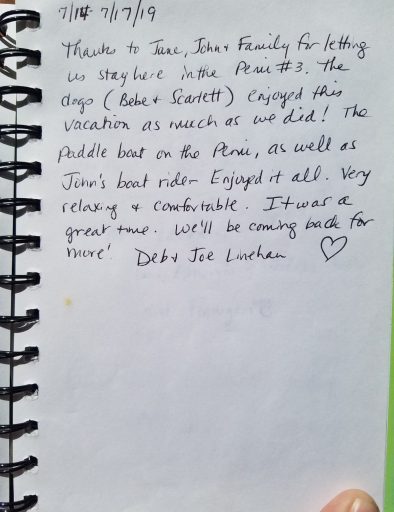 7/14- 7/17/19
Thanks to Jane, John & Family for letting
us stay here in the Penii #3. The
dogs (Bebe & Scarlett) enjoyed this
vacation as much as we did! The
Paddle boat on the Penii, as well as
John's boat ride- Enjoyed it all. Very
relaxing & comfortable. It was a
great time. We'll be coming back for
more! Deb & Joe Linehan ♡